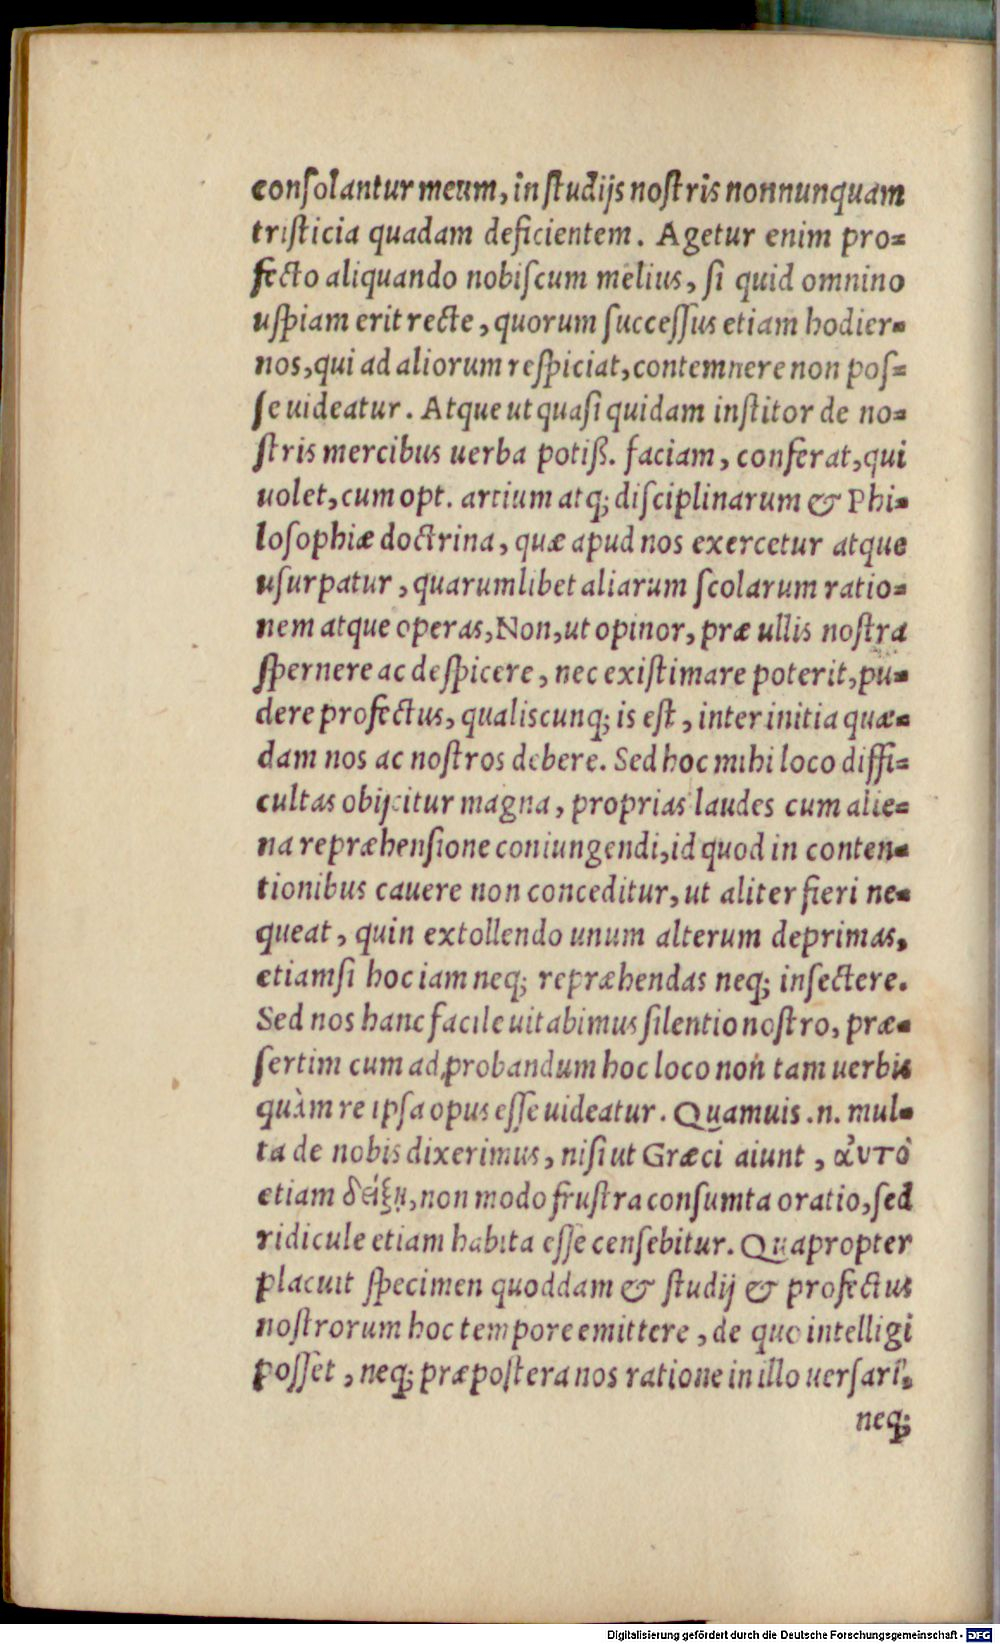 conſolantur meum, in ſtudijs noſtris nonnunquam
triſticia quadam deficientem. Agetur enim pro=
fecto aliquando nobiſcum melius, ſi quid omnino
uſpiam erit recte, quorum ſucceſſus etiam hodier=
nos, qui ad aliorum reſpiciat, contemnere non poſ=
ſe uideatur. Atque ut quaſi quidam inſtitor de no=
ſtris mercibus uerba potiß. faciam, conferat, qui
uolet, cum opt. artium atq; diſciplinarum & Phi=
loſophiæ doctrina, quæ apud nos exercetur atque
uſurpatur, quarumlibet aliarum ſcolarum ratio=
nem atque operas, Non, ut opinor, præ ullis noſtra
ſpernere ac deſpicere, nec exiſtimare poterit, pu=
dere profectus, qualiscunq; is eſt, inter initia quæ=
dam nos ac noſtros debere. Sed hoc mihi loco diffi=
cultas obijcitur magna, proprias laudes cum alie=
na repræhenſione coniungendi, id quod in conten=
tionibus cauere non conceditur, ut aliter fieri ne=
queat, quin extollendo unum alterum deprimas,
etiamſi hoc iam neq; repræhendas neq; inſectere.
Sed nos hanc facile uitabimus ſilentio noſtro, præ=
ſertim cum ad probandum hoc loco non tam uerbis
quàm re ipſa opus eſſe uideatur. Quamuis .n. mul=
ta de nobis dixerimus, niſi ut Græci aiunt, ἀυτὸ
etiam δείξῃ, non modo fruſtra conſumta oratio, ſed
ridicule etiam habita eſſe cenſebitur. Quapropter
placuit ſpecimen quoddam & ſtudij & profectus
noſtrorum hoc tempore emittere, de quo intelligi
poſſet, neq; præpoſtera nos ratione in illo uerſari,
neq;
Digitalisierung gefördert durch die Deutsche Forschungsgemeinschaft - DFG